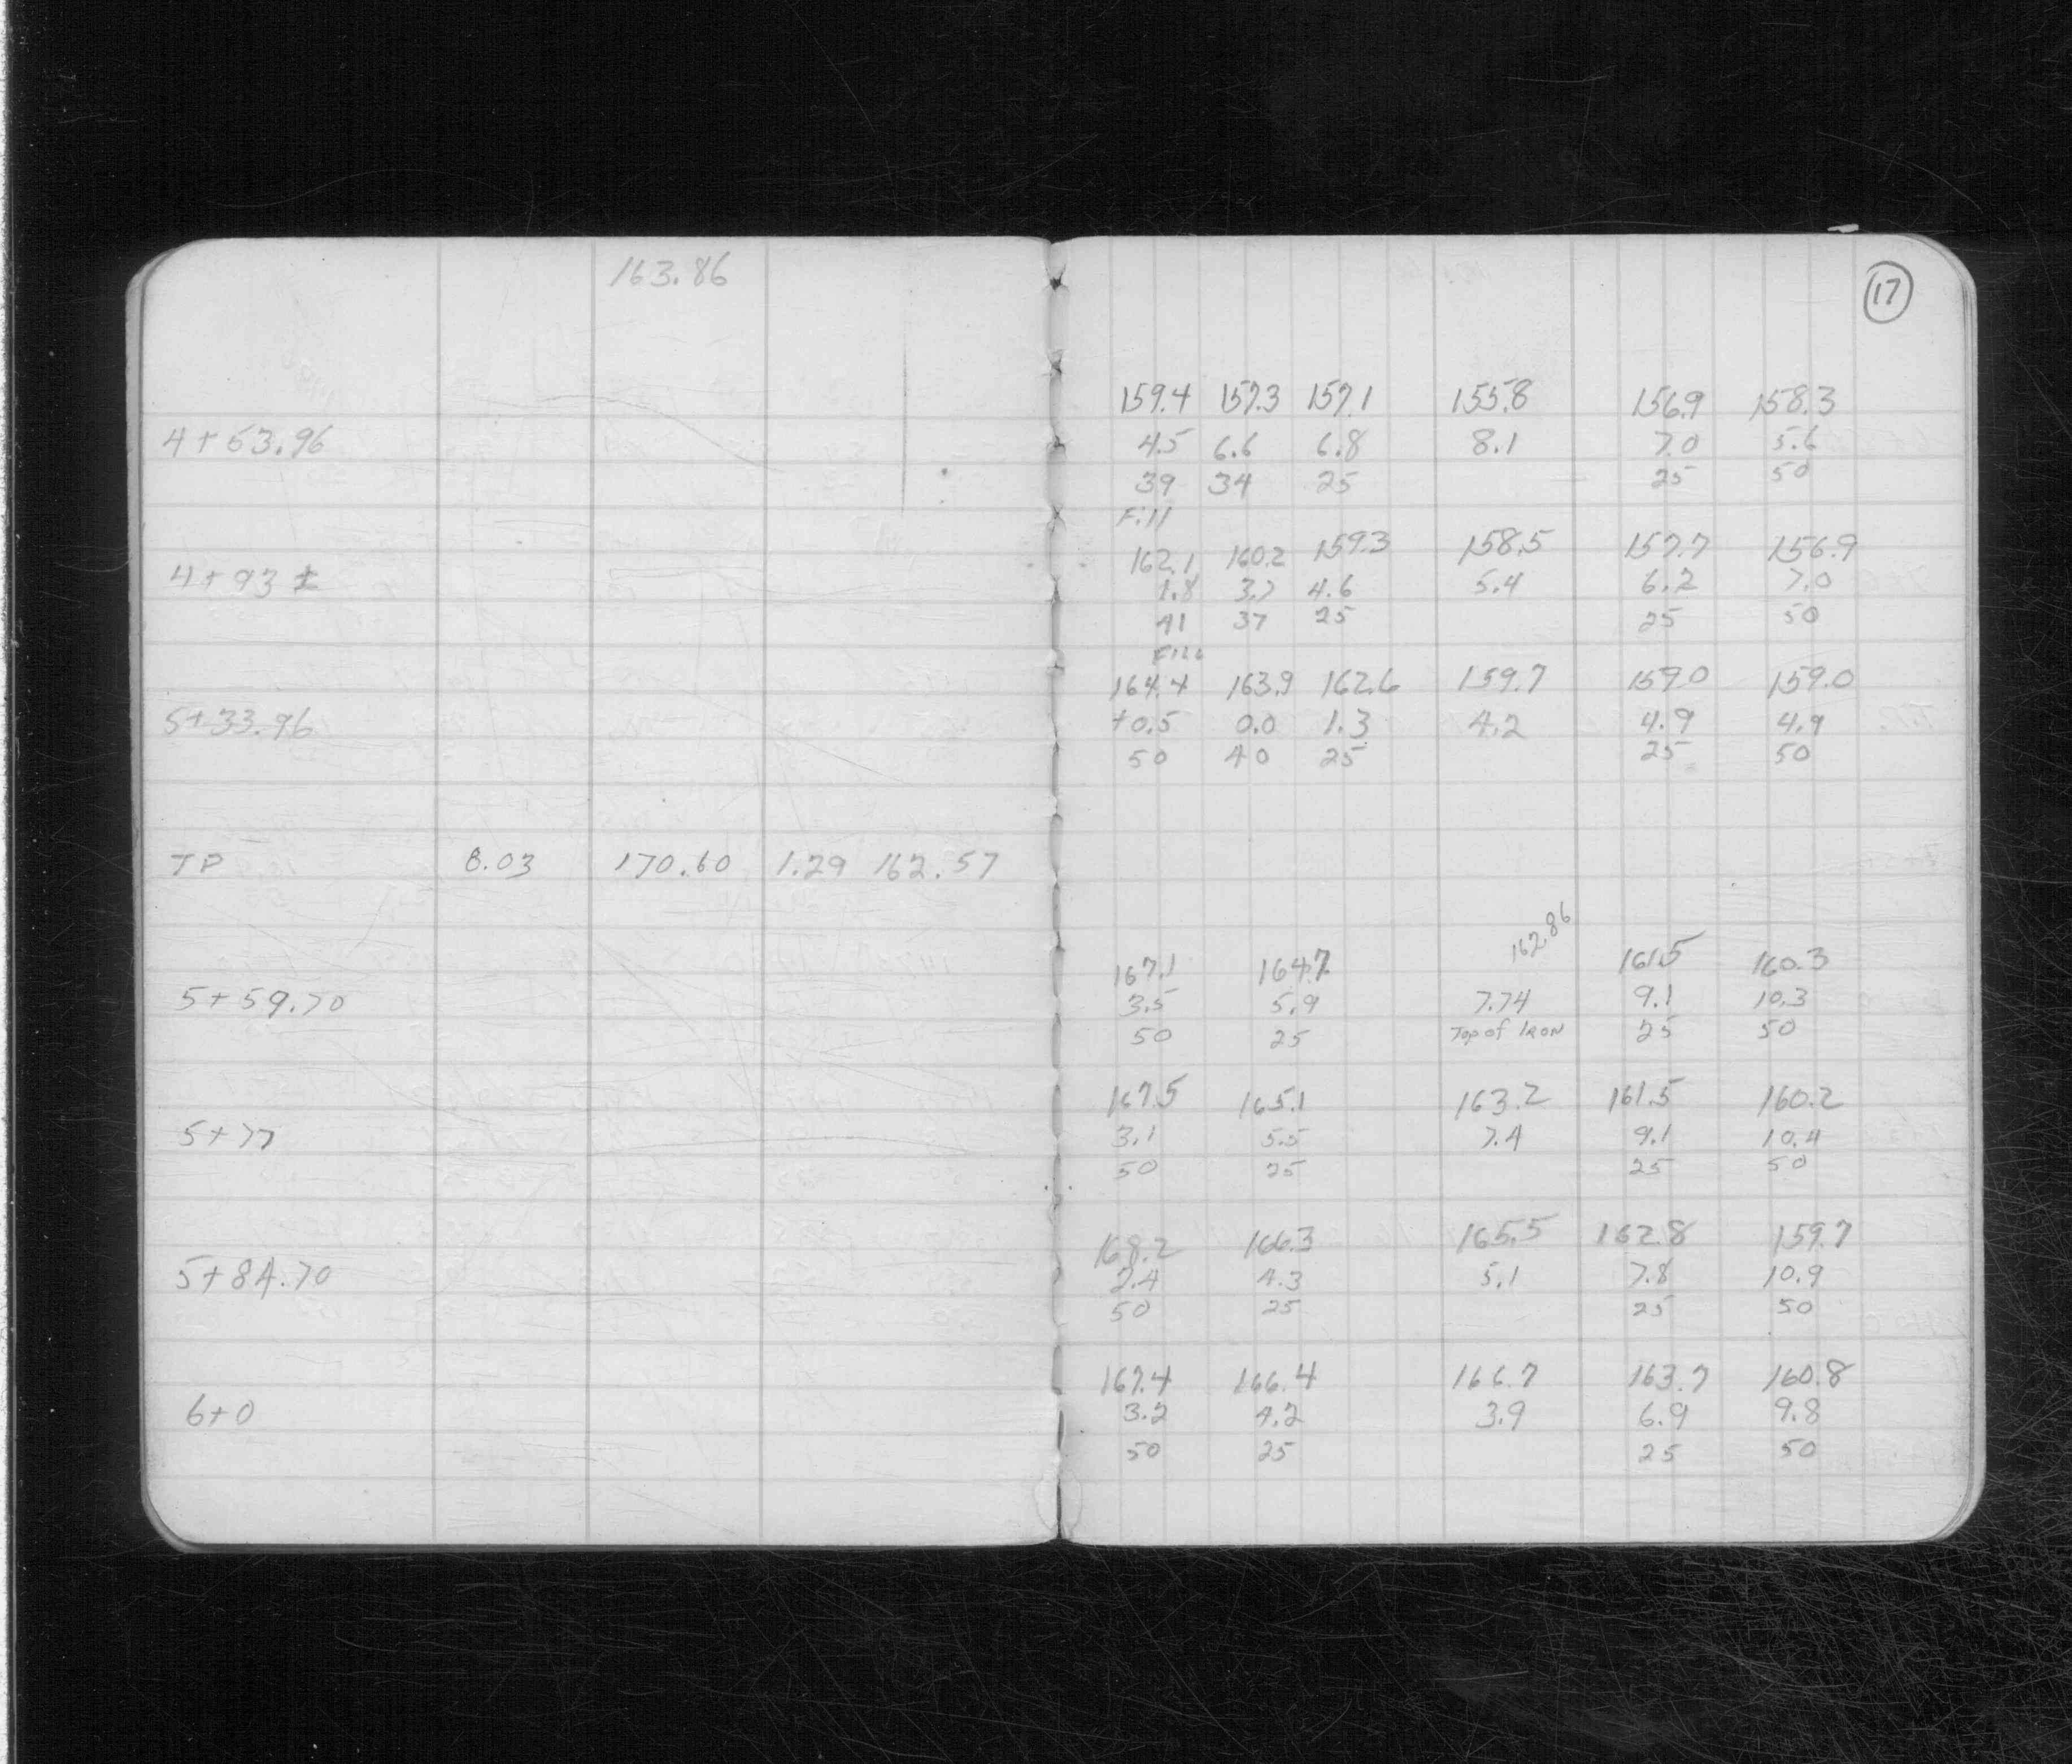 163.86
17
159.4 157.3 157.1 155.8 156.9 158.3
4+53.96 4.5 6.6 6.8 8.1 7.0 5.6
39 34 25 25 50
Fill
162.1 160.2 159.3 158.5 157.7 156.9
4+93 ± 1.8 3.7 4.6 5.4 6.2 7.0
41 37 25 25 50
Fill
164.4 163.9 162.6 159.7 159.0 159.0
5+33.96 +0.5 0.0 1.3 4.2 4.9 4.9
50 40 25 25 50
TP 8.03 170.60 1.29 162.57
167.1 164.7 162.86 161.5 160.3
5+59.70 3.5 5.9 7.74 9.1 10.3
50 25 Top of IRON 25 50
167.5 165.1 163.2 161.5 160.2
5+77 3.1 5.5 7.4 9.1 10.4
50 25 25 50
168.2 166.3 165.5 162.8 159.7
5+84.70 2.4 4.3 5.1 7.8 10.9
50 25 25 50
167.4 166.4 166.7 163.7 160.8
6+0 3.2 4.2 3.9 6.9 9.8
50 25 25 50